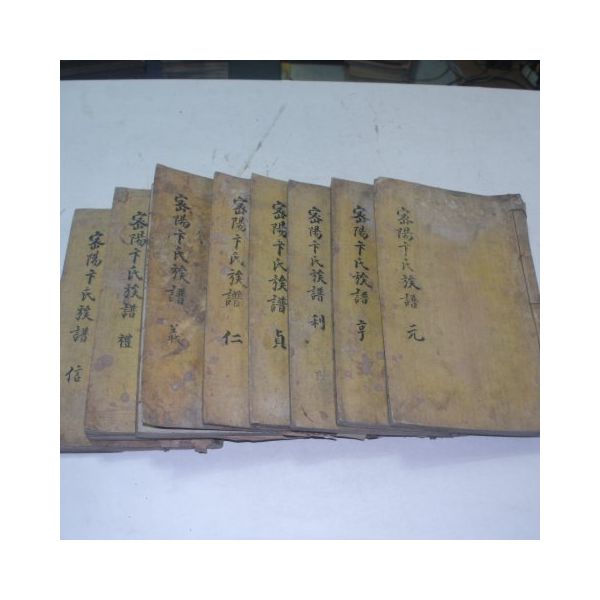 密陽卞氏族譜 元
密陽卞氏族譜 亨
密陽卞氏族譜 利
密陽卞氏族譜 貞
密陽卞氏族譜 仁
密陽卞氏族譜 義
密陽卞氏族譜 禮
密陽卞氏族譜 信